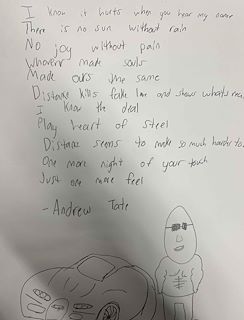 I know it hurts when you hear my name
There is no sun without rain
No joy without pain
Whoever made souls
Made ours the same
Distance kills fake love and shows what's
I know the deal
Play heart of steel
Distance seems to make so much harder to
One more night of your touch
Just one more feel
- Andrew Tate